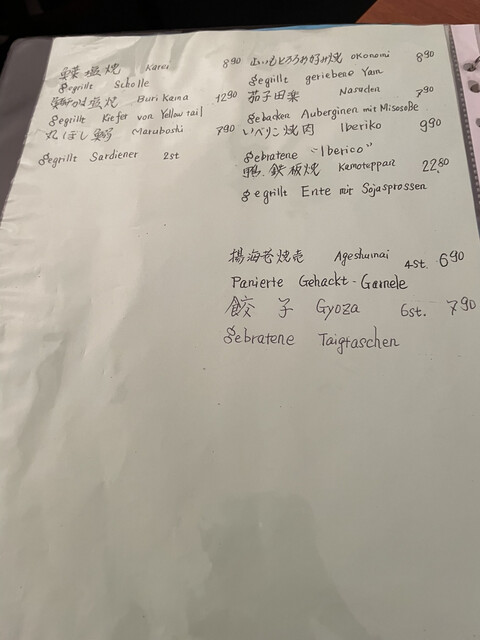 塩焼 Karei 8 90
gegrillt Scholle
塩焼 Buri Kama 12 90
gegrillt Kiefer von Yellow tail
丸ぼし Maruboshi 7 90
gegrillt Sardiener 2st
お好み焼 Okonomi 8 90
gegrillt geriebene Yam
茄子田楽 Nasuden 7 90
gebacken Auberginen mit Misosoße
いべりこ焼肉 Iberiko 9 90
gebratene "Iberico"
鴨 鉄板焼 Kamoteppan 22.80
gegrillt Ente mit Sojasprossen
揚海老焼売 Ageshumai 4st. 6 90
Panierte Gehackt-Garnele
餃子 Gyoza 6st. 7 90
gebratene Taigtaschen